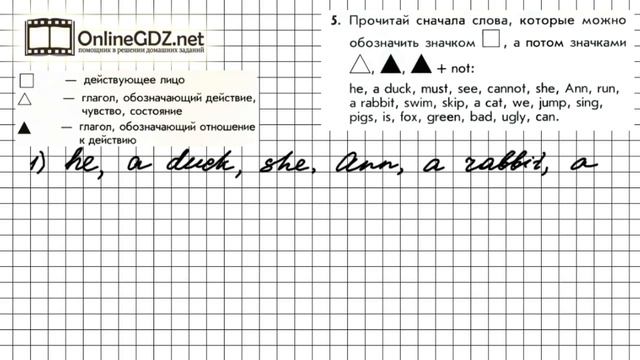 OnlineGDZ.net
помощник в решении домашних заданий
— действующее лицо
— глагол, обозначающий действие,
чувство, состояние
— глагол, обозначающий отношение
к действию
5. Прочитай сначала слова, которые можно
обозначить значком , а потом значками
, , + not:
he, a duck, must, see, cannot, she, Ann, run,
a rabbit, swim, skip, a cat, we, jump, sing,
pigs, is, fox, green, bad, ugly, can.
1) he, a duck, she. Ann, a rabbit, a